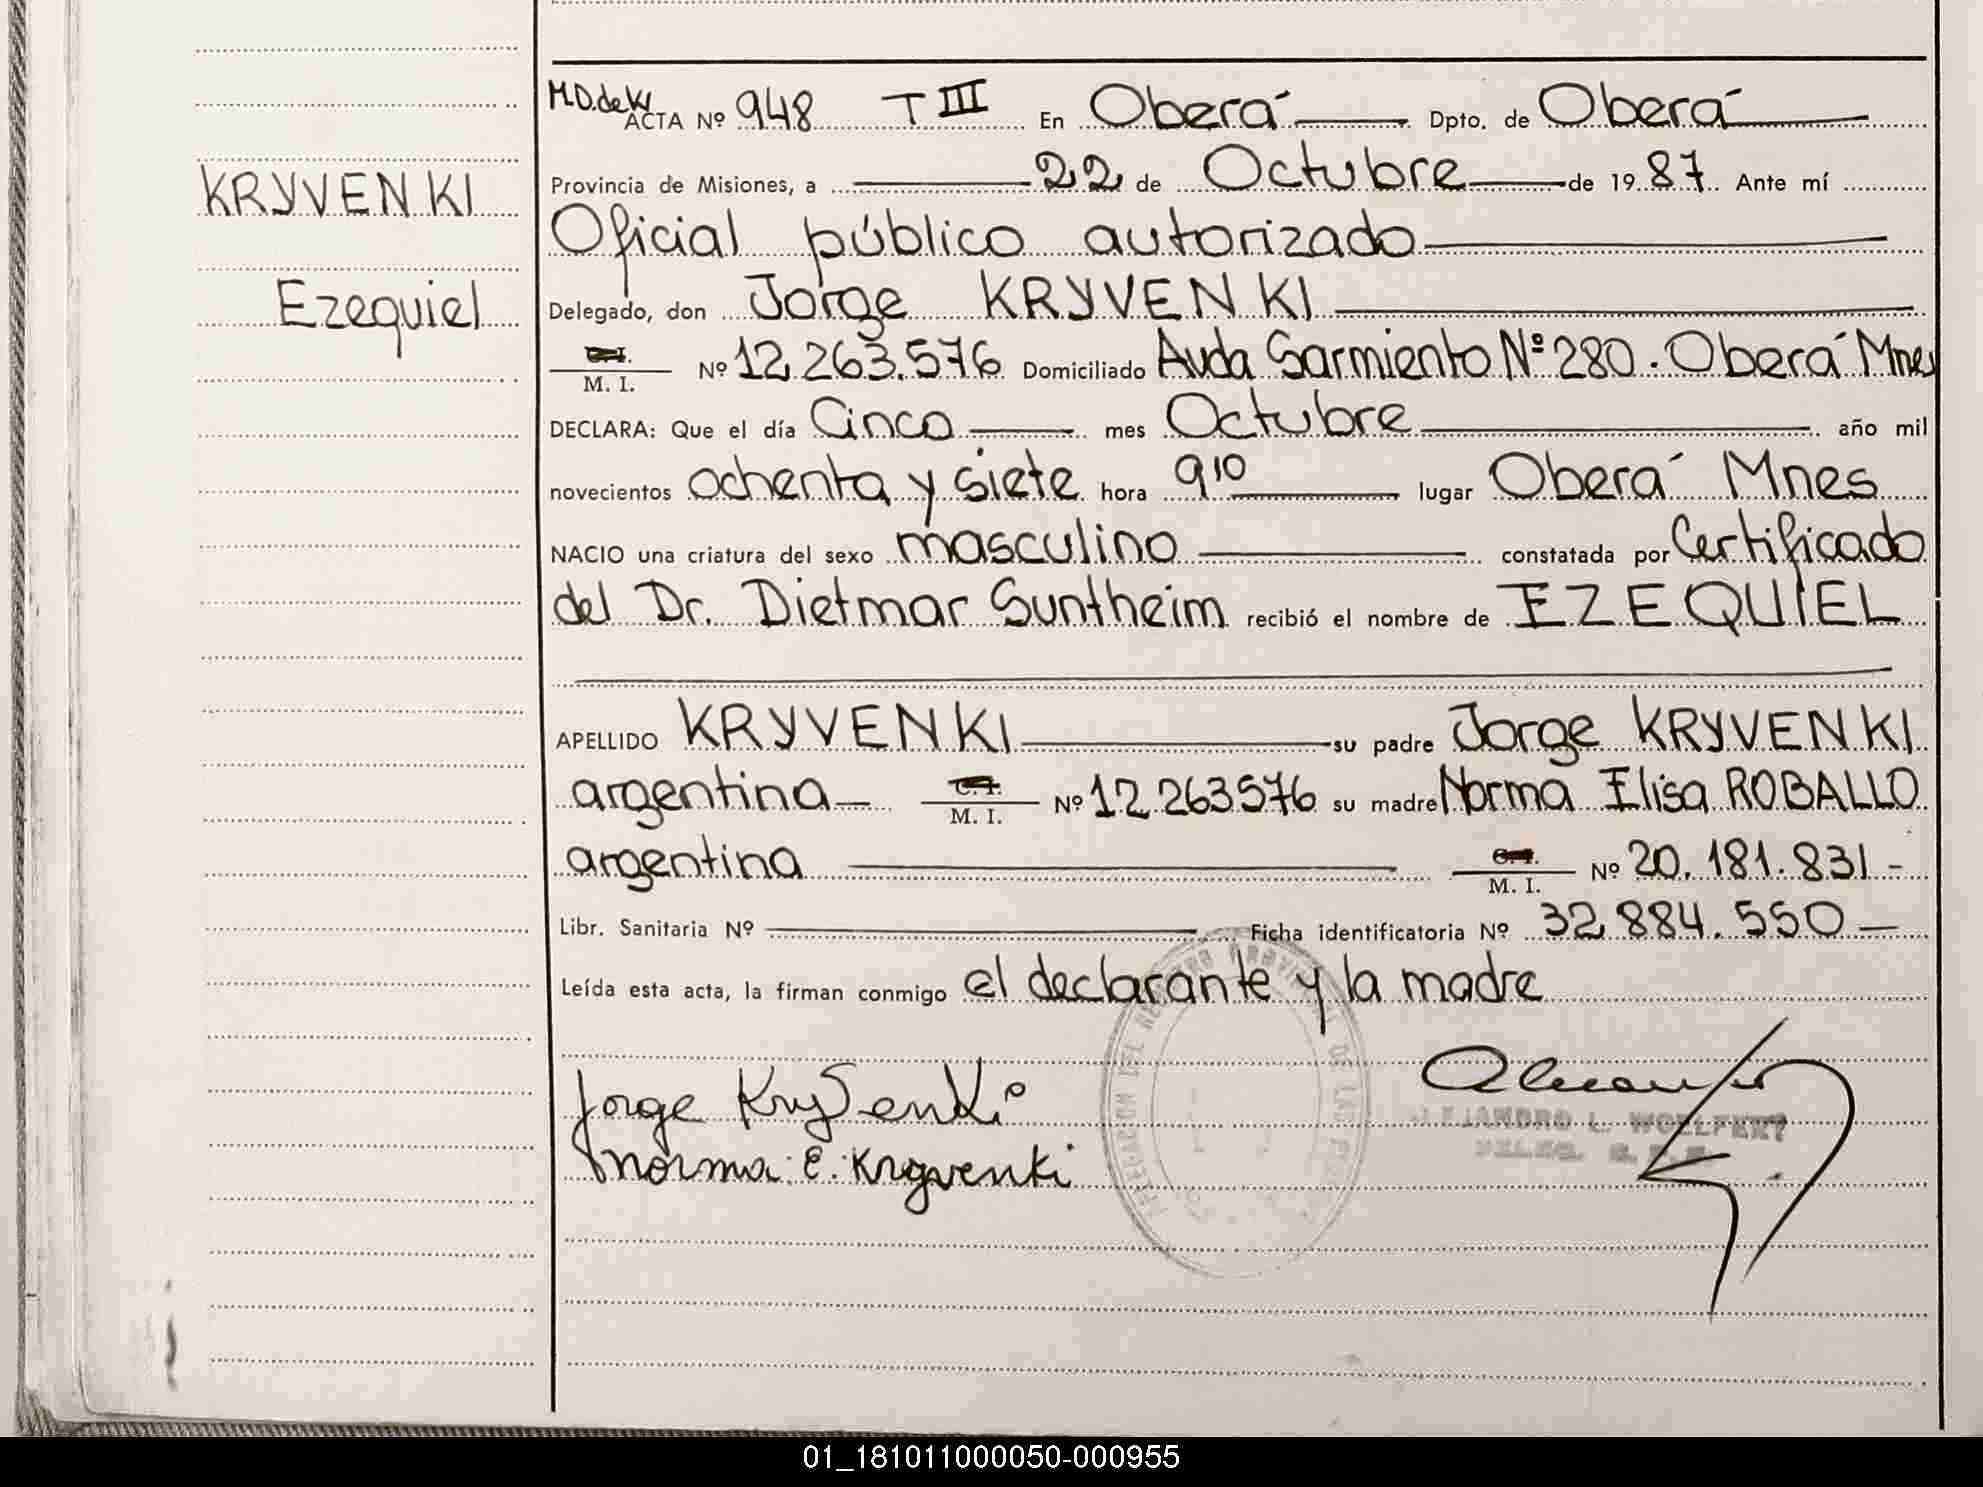 M.D. de W
ACTA Nº 948 T III En Oberá Dpto. de Oberá
Provincia de Misiones, a 22 de Octubre de 1987 Ante mí
KRYVENKI
Oficial público autorizado
Ezequiel
Delegado, don Jorge KRYVENKI
C. I. M. I. Nº 12.263.576 Domiciliado Avda Sarmiento Nº 280. Oberá Mnes
DECLARA: Que el día Cinco mes Octubre año mil
novecientos ochenta y siete hora 9 10 lugar Oberá Mnes
NACIO una criatura del sexo masculino constatada por Certificado
del Dr. Dietmar Suntheim recibió el nombre de EZEQUIEL
APELLIDO KRYVENKI su padre Jorge KRYVENKI
argentina C. I. M. I. Nº 12.263576 su madre Norma Elisa ROBALLO
argentina C. I. M. I. Nº 20.181.831-
Libr. Sanitaria Nº Ficha identificatoria Nº 32.884.550-
Leída esta acta, la firman conmigo el declarante y la madre
Jorge Kryvenki
ALEJANDRO L. WOELFERT
Norma E. Kryvenki
01_181011000050-000955